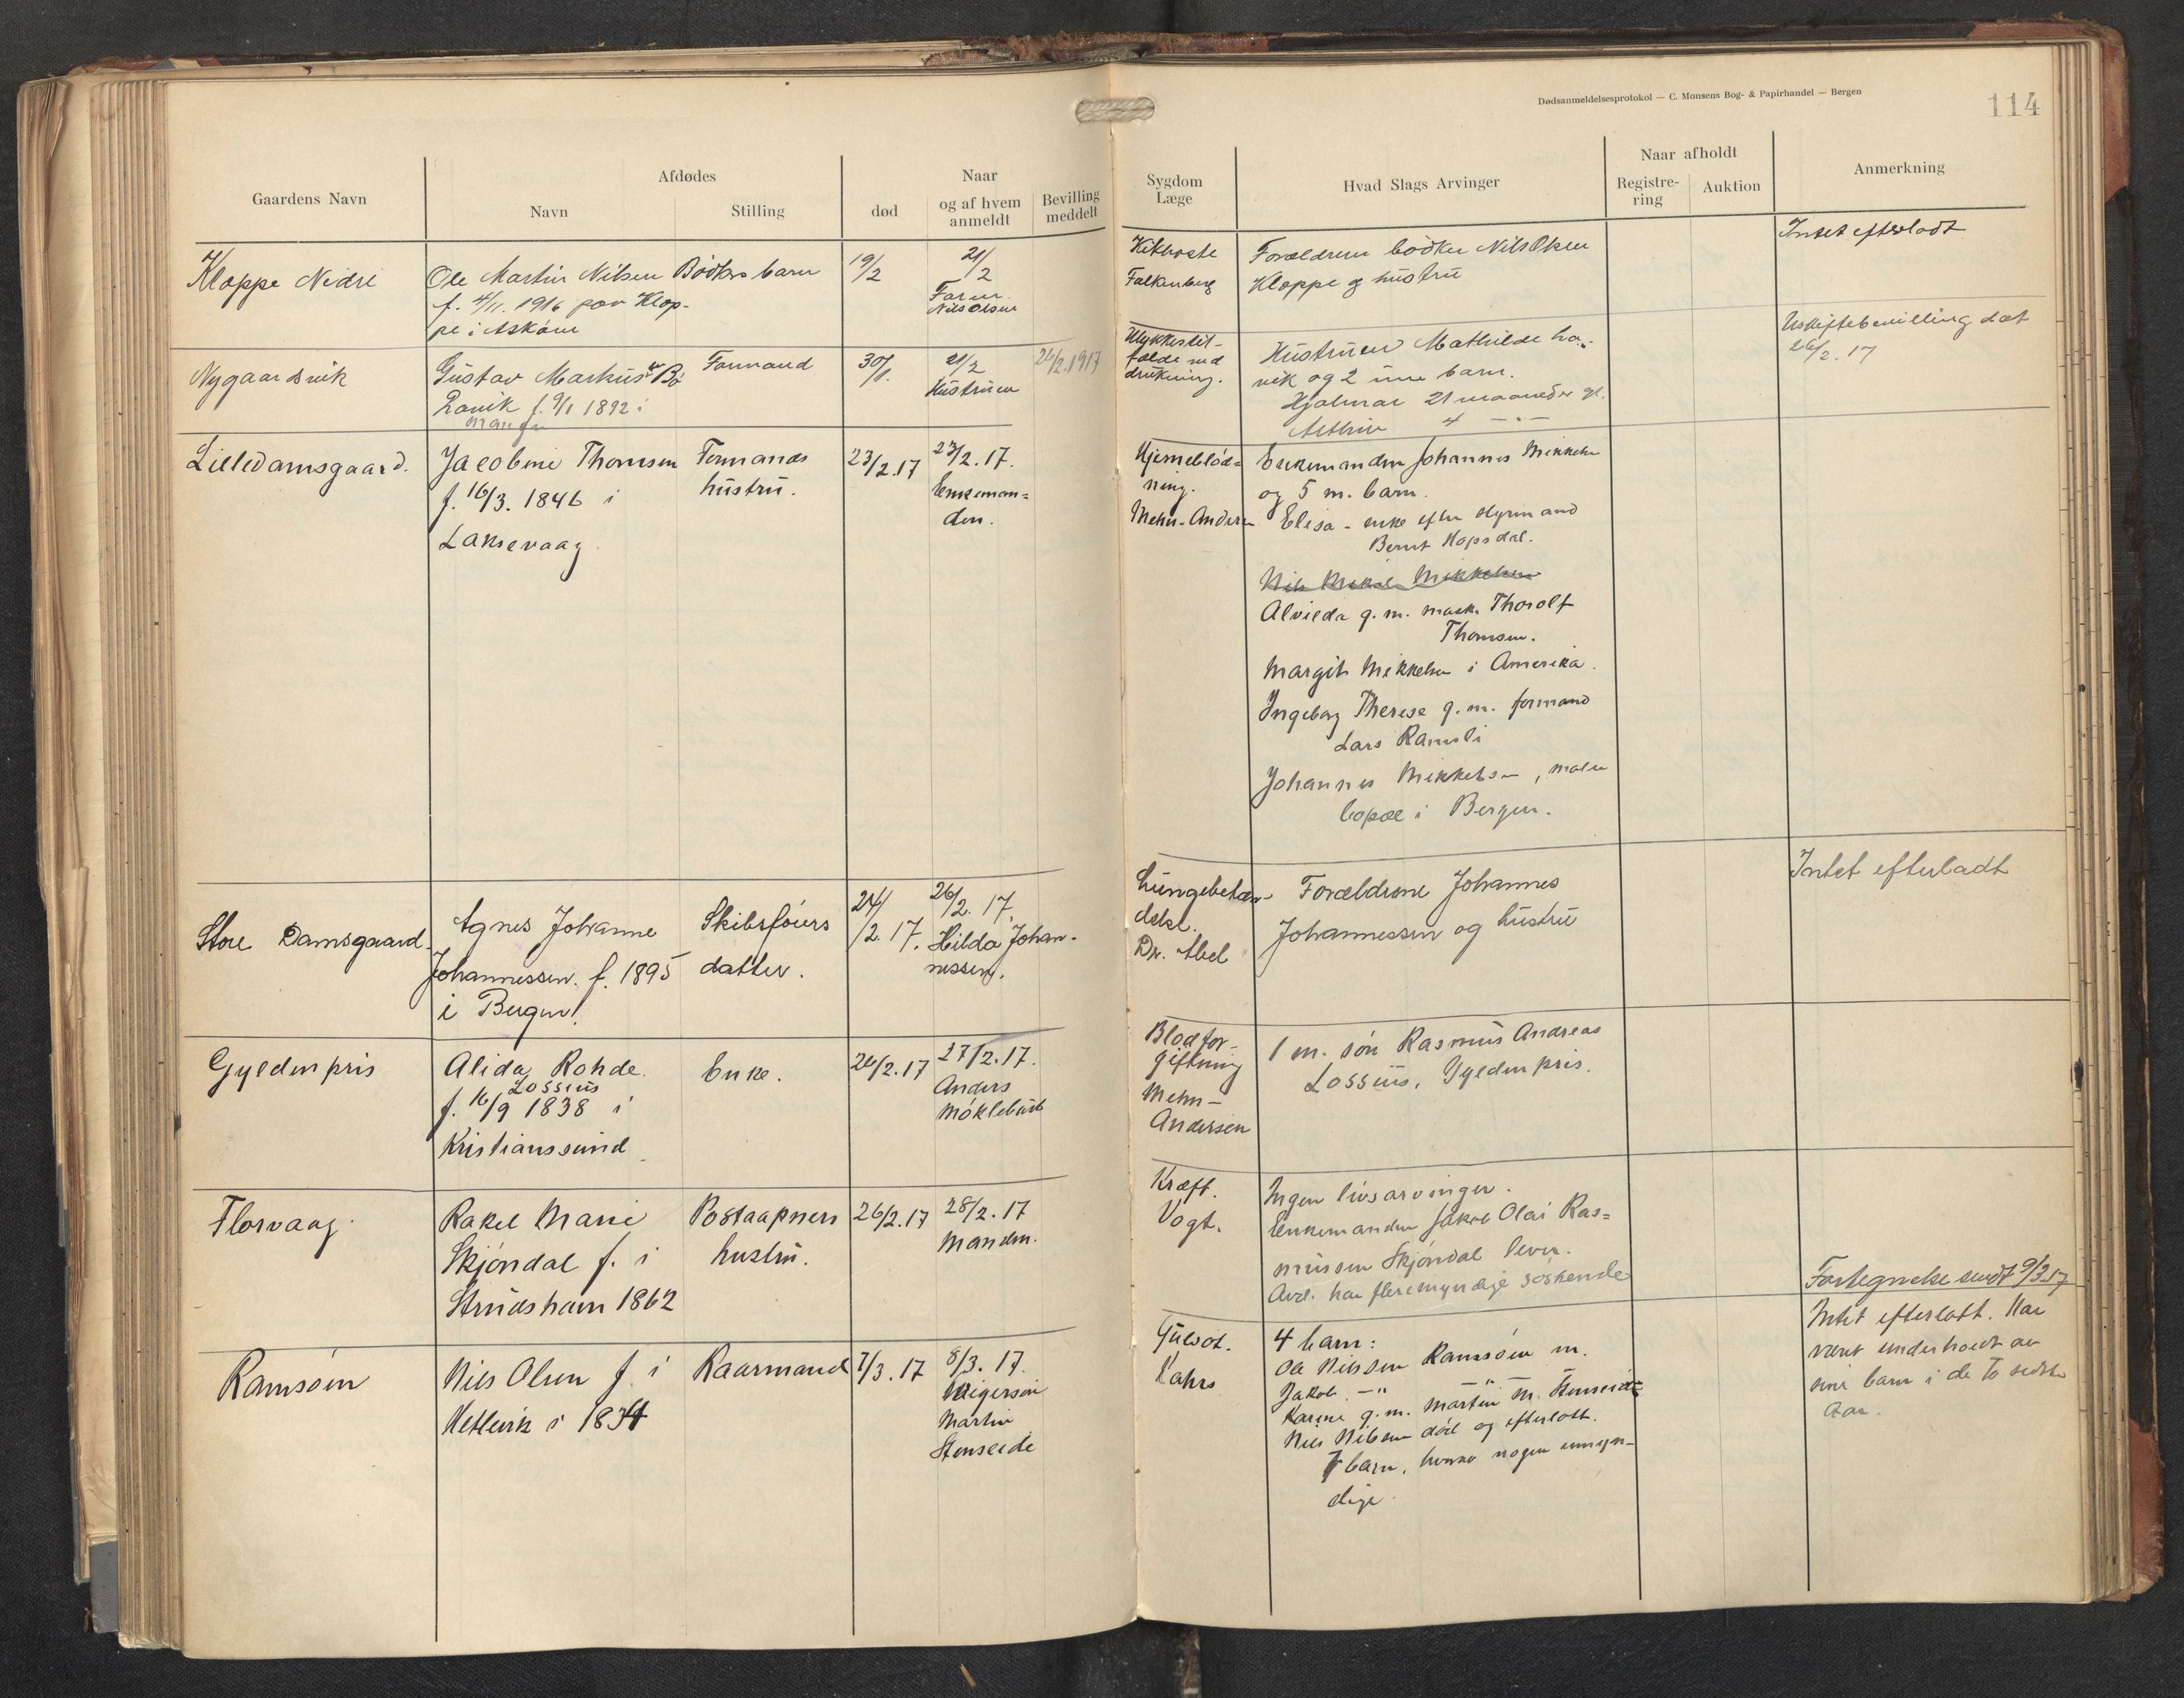 Dødsanmeldelsesprotokol — C. Monsens Bog- & Papirhandel — Bergen
114
Gaardens Navn
Afdødes
Navn
Stilling
Naar
død
og af hvem anmeldt
Bevilling meddelt
Sygdom
Læge
Hvad Slags Arvinger
Naar afholdt
Registre-
ring
Auktion
Anmerkning
Kloppe Nedre
Ole Martin Nilsen
f. 4/11. 1916 paa Klop-
pe i Askøen
Bødkers barn
19/2
21/2
Faren
Nils Olsen
Kikhoste
Falkenberg
Forældrene bødker Nils Olsen
Kloppe og hustru
Intet efterladt
Nygaardsvik
Gustav Markus
f. 9/1 1892 i
Manger
Formand
30/1.
21/2
Hustruen
26/2.1917
Ulykkestil-
fælde ved
drukning.
Hustruen Mathilde
vik og 2 um. barn.
Hjalmar 21 maaneder gl.
4 — " —
Uskiftebevilling dat
26/2. 17
Lilledamsgaard.
Jacobine Thomsen
f. 16/3. 1846 i
Laksevaag.
Formands
hustru.
23/2.17
23/2.17.
Enkeman=
den.
Hjerneblød=
ning.
Mehn-Andersen
Enkemanden Johannes Mikkelsen
og 5 m. barn.
Elisa - enke efter styrmand
Bernt Hopsdal.
Alvilda g. m. mask. Thorolf
Thomsen.
Margit Mikkelsen i Amerika.
Ingeborg Therese g. m. formand
Lars Ramsli
Johannes Mikkelsen, maler
bopæl i Bergen.
Store Damsgaard.
Agnes Johanne
Johannessen. f. 1895
i Bergen.
Skibsførers
datter.
24/2. 17.
26/2. 17.
Hilda Johan-
nessen.
Lungebetæn-
delse.
Dr. Abel
Forældrene Johannes
Johannessen og hustru
Intet efterladt
Gyldenpris
Alida Rohde
Lossius
f. 16/9 1838 i
Kristianssund
Enke.
26/2.17
27/2.17.
Anders
Møklebust
Blodfor-
giftning
Mehn-
Andersen
1 m. søn Rasmus Andreas
Lossius, Gyldenpris.
Florvaag.
Rakel Marie
Skjøndal f. i
Strudshavn 1862
Postaapners
hustru.
26/2.17
28/2.17
Manden.
Kræft.
Vogt.
Ingen livsarvinger.
Enkemanden Jakob Olai Ras=
mussen Skjøndal lever.
Avd. har flere myndige søskende
Fortegnelse sendt 9/3.17
Ramsøen
Nils Olsen f. i
Hetlevik i 1834
Kaarmand
7/3.17
8/3. 17.
Svigersøn
Martin
Stenseide
Gulsot.
Kahrs
4 barn:
Ole Nilssen Ramsøen m.
Jakob — " — — " — m.
Karine g. m. Martin Stenseide
Nils Nilsen død og efterlatt.
7 barn, hvorav nogen umyn-
dige.
Intet efterlatt. Har
været underholdt av
sine barn i de to sidste
Aar.